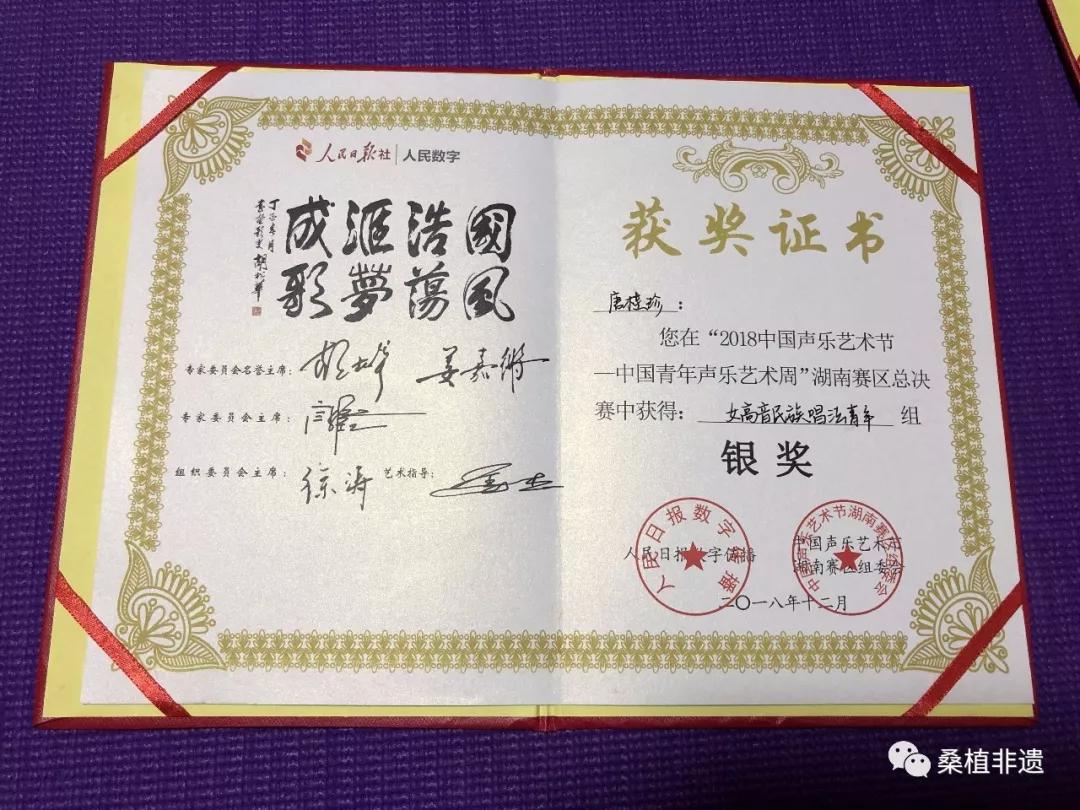 人民日报社 | 人民数字
國風
浩蕩
滙夢
成歌
专家委员会名誉主席:
姜嘉锵
专家委员会主席:
组织委员会主席: 徐涛 艺术指导:
获奖证书
唐桂珍:
您在“2018中国声乐艺术节
—中国青年声乐艺术周”湖南赛区总决
赛中获得: 女高音民族唱法青年 组
银奖
人民日报数字传播
中国声乐艺术节
湖南赛区组委会
二〇一八年十二月
人民日报数字传播
中国声乐艺术节湖南赛区组委会
桑植非遗